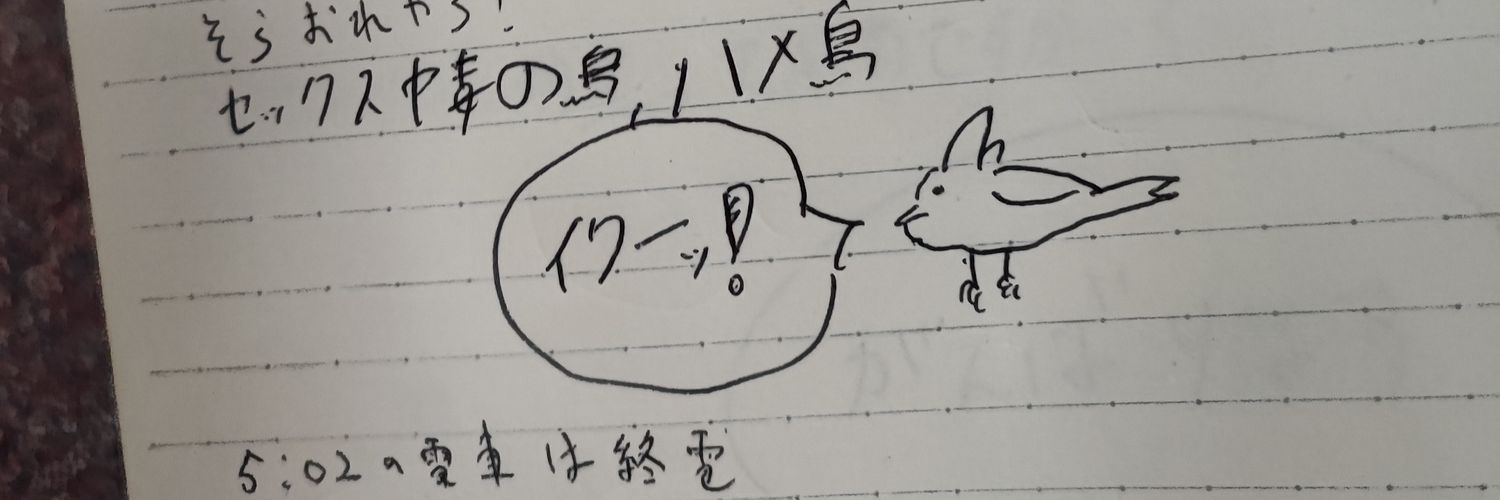 そらおれやろ!
セックス中毒の鳥、ハメ鳥
イクーッ!
5:02の電車は終電